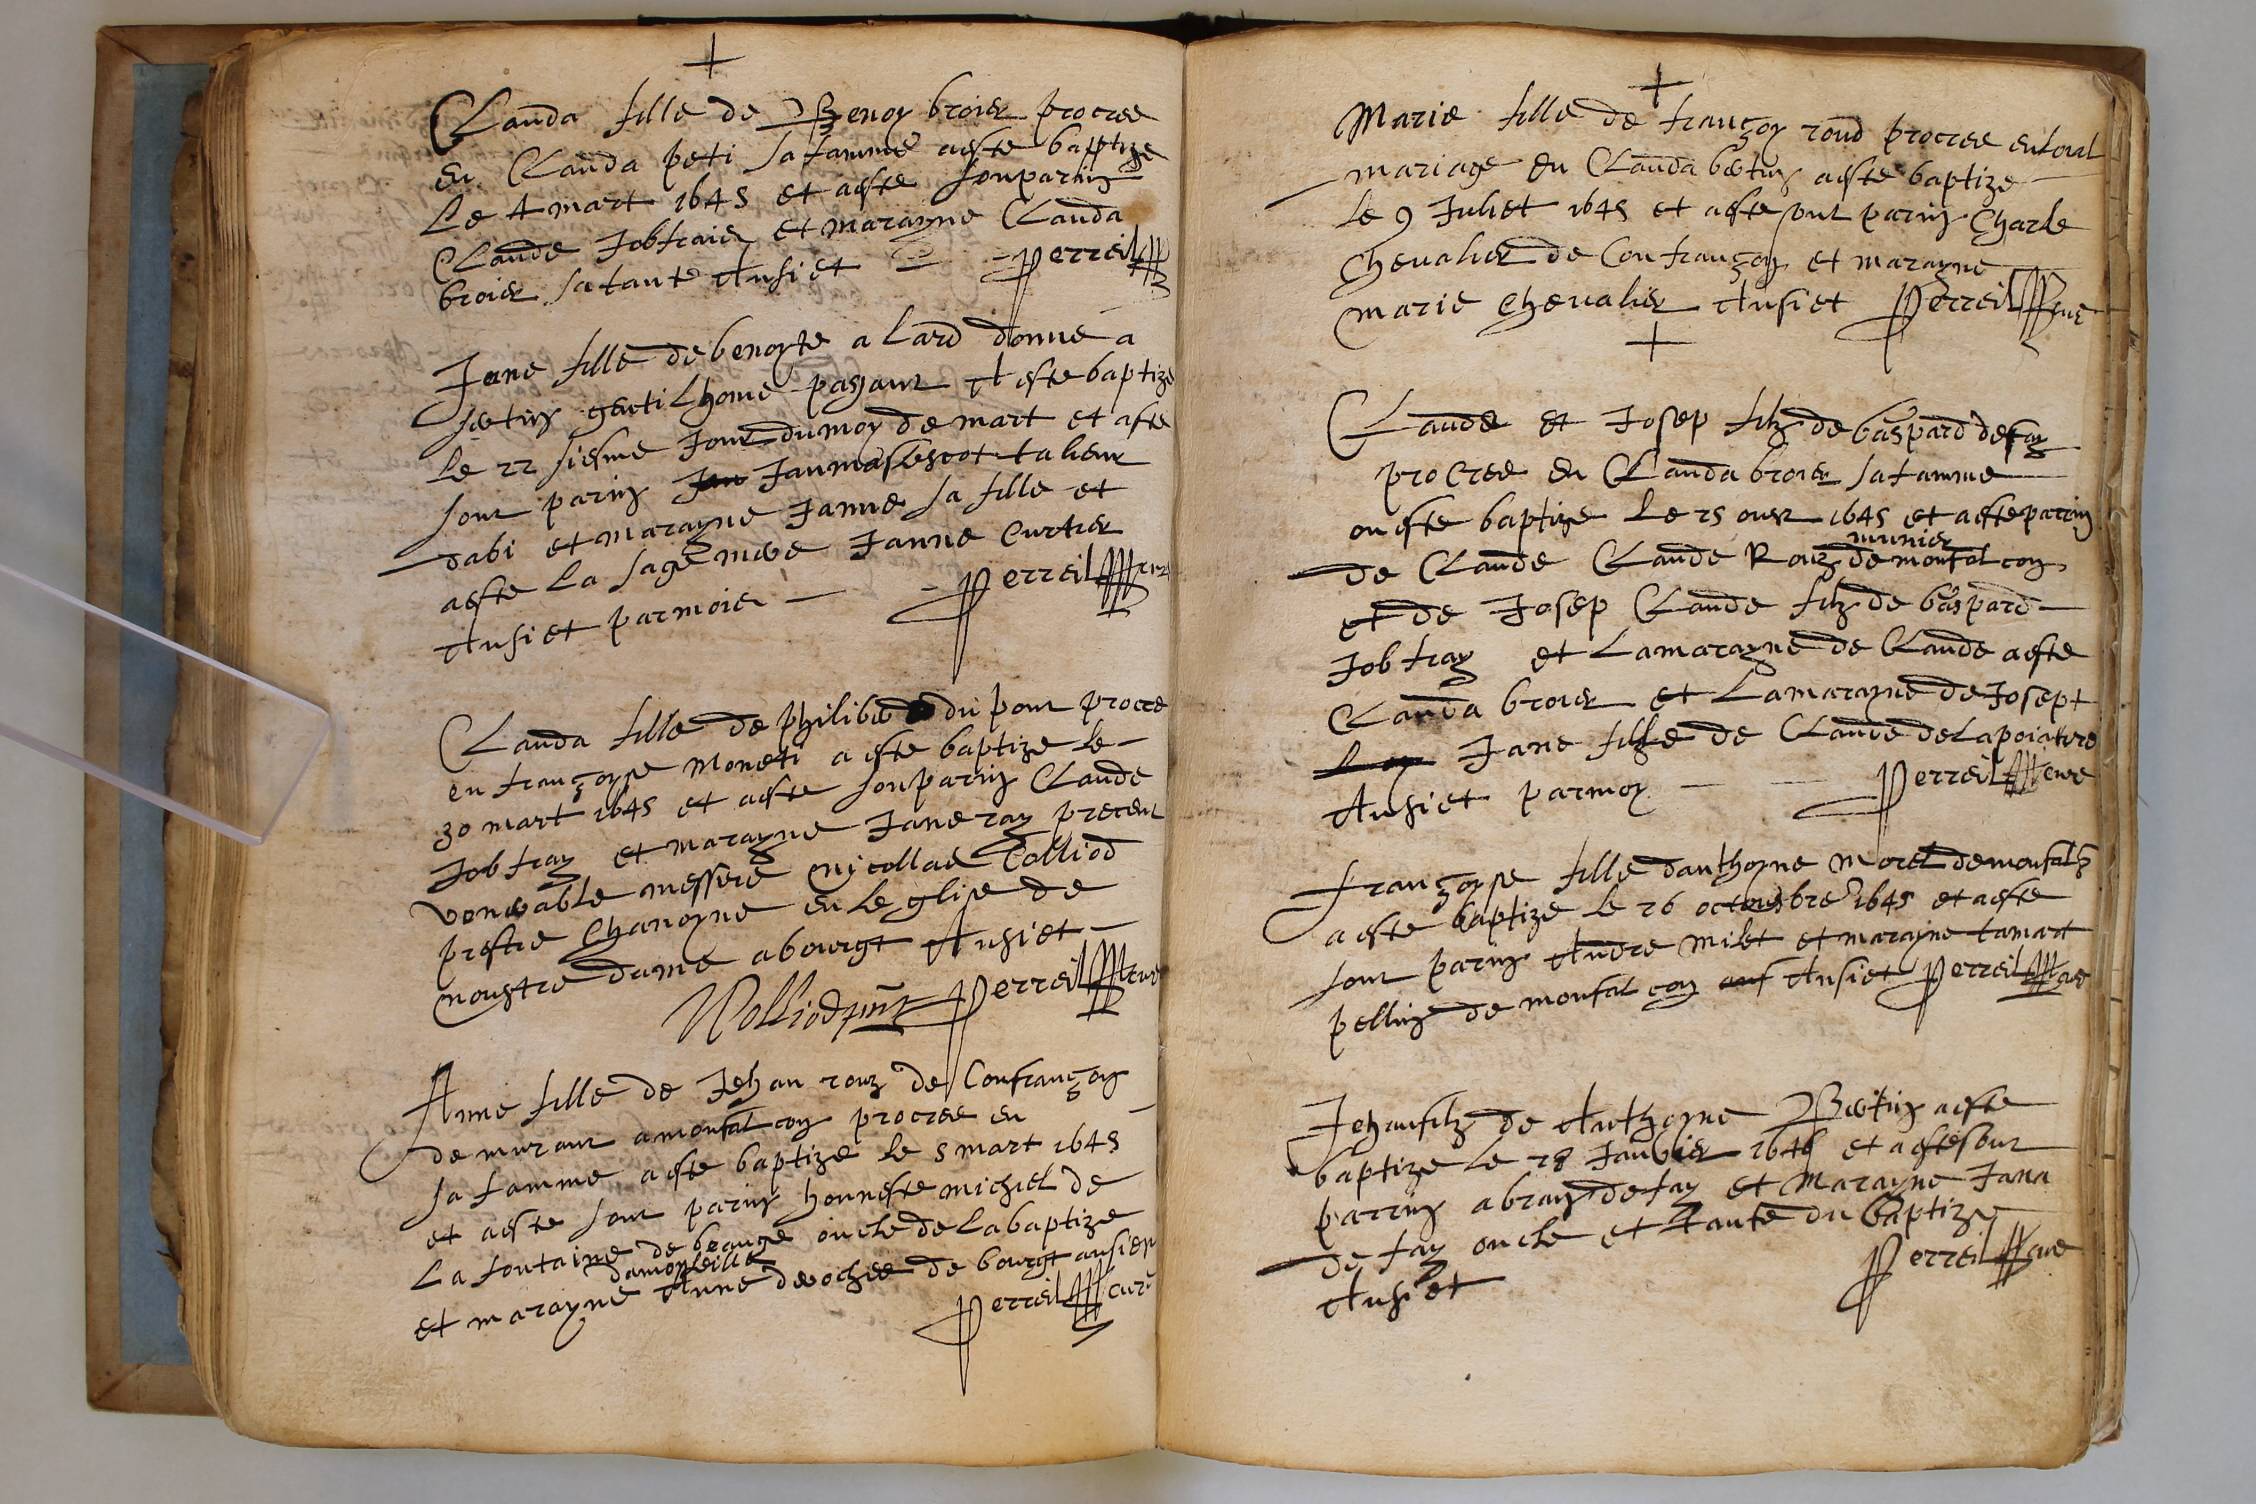 Clauda fille de Benoy broier procree
en Clauda peti sa famme aeste baptize
Le 4 mart 1645 et aeste son parin
Claude Jobfraier et marayne Clauda
broier sa tante Ausiet Perreil
Jane fille de benoyte alard donne a
gentilhome pasant At este baptize
le 22 siesme Jour du moy de mart et aeste
sont parin talieur
dabi et marayne Janne sa fille et
aeste la sage mere Janne Curtier
Ausiet par moier Perreil cure
Clauda fille de philiber du pont procre
en françoyse Moneti a este baptize le
30 mart 1645 et aeste son parin Claude
Jobfray et marayne Jane ray precent
venerable messere nycollas Colliod
prestre Chanoyne en le glise de
noustre dame a bourgt Ausiet
Perreil cure
Anne fille de Jehan rouz de Confrançon
demurant a monfalcon procree en
sa famme aeste baptize le 5 mart 1645
et aeste sont parin honneste michiel de
La fontaine de beauge oncle de la baptize
damoyselle
et marayne Anne de bourgt ausiet
Perreil cure
Marie fille de françoy rond procree en loial
mariage en Clauda bertin aeste baptize
le 9 Juliet 1645 et aeste sont parin Charle
Chevalier de Confrançon et marayne
marie Chevalier Ausiet Perreil cure
Claude et Josep filz de baspard de fay
procree en Clauda broier sa famme
on este baptize le 25 1645 et aeste parrin
munier
de Claude Claude Rouz de monfalcon
et de Josep Claude filz de baspard
Jobfray et La marayne de Claude aeste
Clauda broier et La marayne de Josept
Jane filhe de Claude de Lapoiature
Ausiet par moy Perreil cure
françoyse fille danthoyne Morel de monfalcon
a este baptize le 26 octousbre 1645 et aeste
sont parin Andre Milet et marayne
pellin de monfalcon Ausiet Perreil cure
Jehan filz de Anthoyne Bertin aeste
baptize le 28 Janvier 1646 et aeste sont
parrin abray de fay et Marayne Jana
de fay oncle et tante du baptize
Ausiet Perreil cure